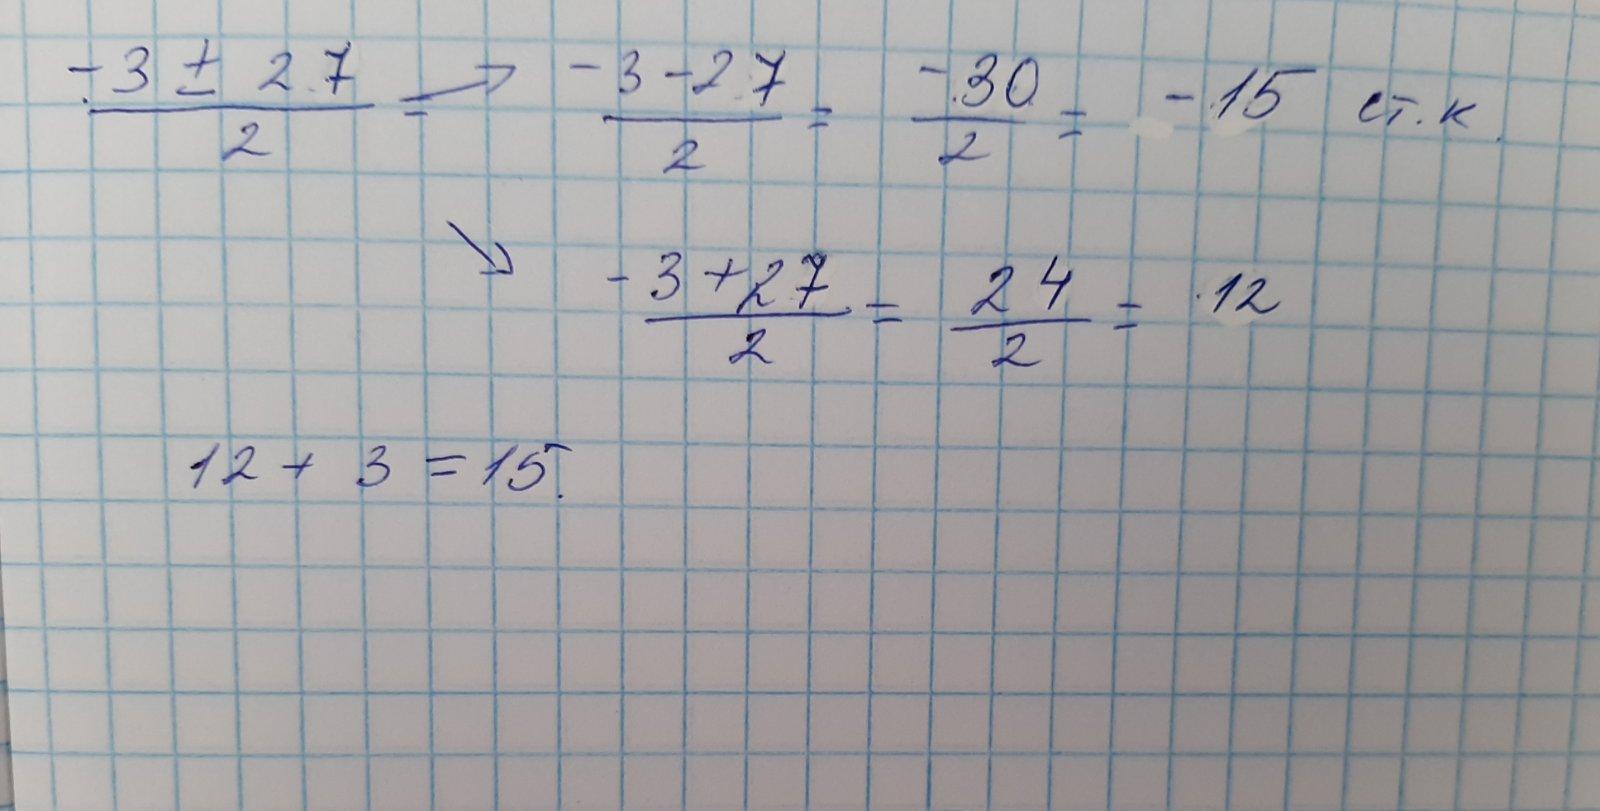 (-3 ± 27)/2 = → (-3 - 27)/2 = -30/2 = -15 ст. к.
↘ (-3 + 27)/2 = 24/2 = 12
12 + 3 = 15.